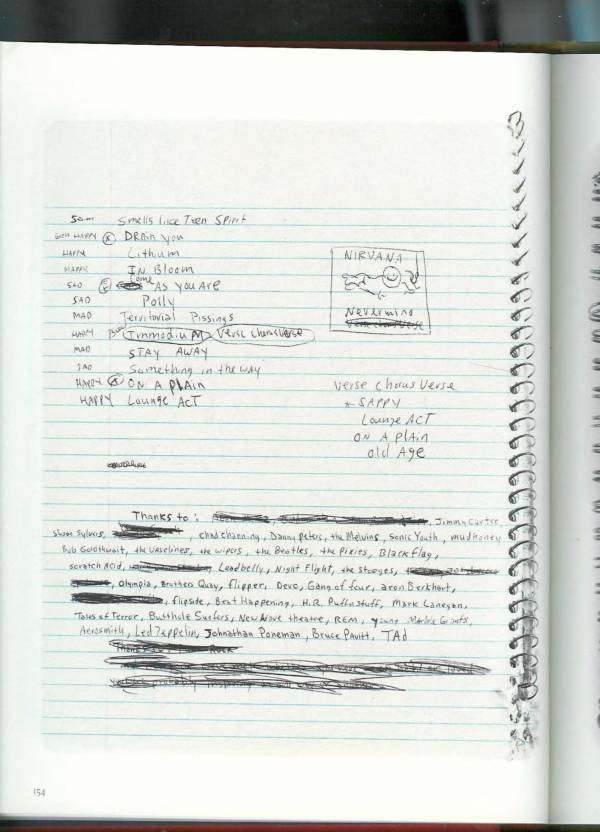 Smells Like Teen Spirit
HAPPY Drain you
HAPPY Lithium
HAPPY IN Bloom
SAD Come AS You ARE
SAD Polly
MAD Territorial Pissings
HAPPY Immodium Verse Chorus Verse
MAD STAY AWAY
SAD Something in the way
HAPPY ON A PlAIN
HAPPY Lounge AcT
NIRVANA
Nevermind
Verse Chorus Verse
Verse Chorus Verse
* SAPPY
Lounge ACT
ON A PlAin
Old Age
Thanks to: Jimmy Carter,
, chad channing, Danny Peters, the Melvins, Sonic Youth, mudhoney
Bob Goldthwait, the Vaselines, the Wipers, the Beatles, the Pixies, Black Flag,
Scratch Acid, Leadbelly, Night Flight, the stooges,
, Olympia, Brothers Quay, Flipper, Devo, Gang of four, aron Berkhart,
, flipside, Beat Happening, H.R. Puffnstuff, Mark Lanegan,
Tales of Terror, Butthole Surfers, New Wave theatre, REM, Young Marble Giants,
Aerosmith, Led Zeppelin, Johnathan Poneman, Bruce Pavitt, TAd
Rock
154